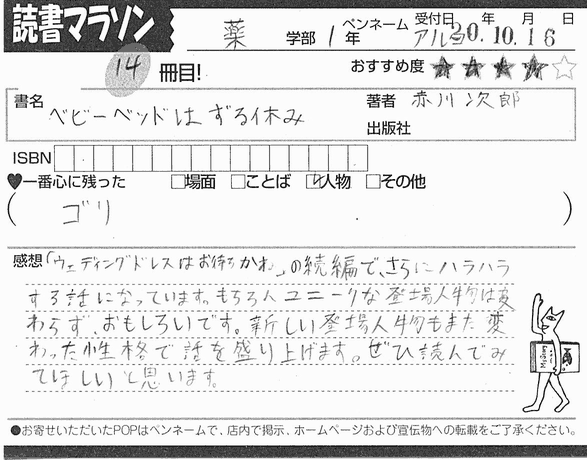 読書マラソン
薬 学部 1年
ペンネーム アルゴ
受付日 年 月 日
20.10.16
14 冊目!
おすすめ度 ★★★★☆
書名 ベビーベッドはずる休み
著者 赤川次郎
出版社
ISBN
♥一番心に残った □場面 □ことば ☑人物 □その他
( ゴリ )
感想「ウェディングドレスはお待ちかね」の続編で、さらにハラハラ
する話になっています。もちろんユニークな登場人物は変
わらず、おもしろいです。新しい登場人物もまた変
わった性格で話を盛り上げます。ぜひ読んでみ
てほしいと思います。
●お寄せいただいたPOPはペンネームで、店内で掲示、ホームページおよび宣伝物への転載をご了承ください。